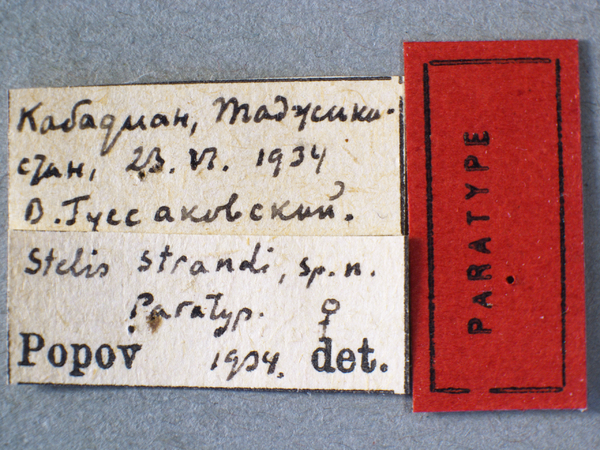 Кабадиан, Таджики-
стан, 23. VI. 1934
В. Гуссаковский.
Stelis strandi, sp. n.
Paratyp. ♀
Popov 1934. det.
PARATYPE